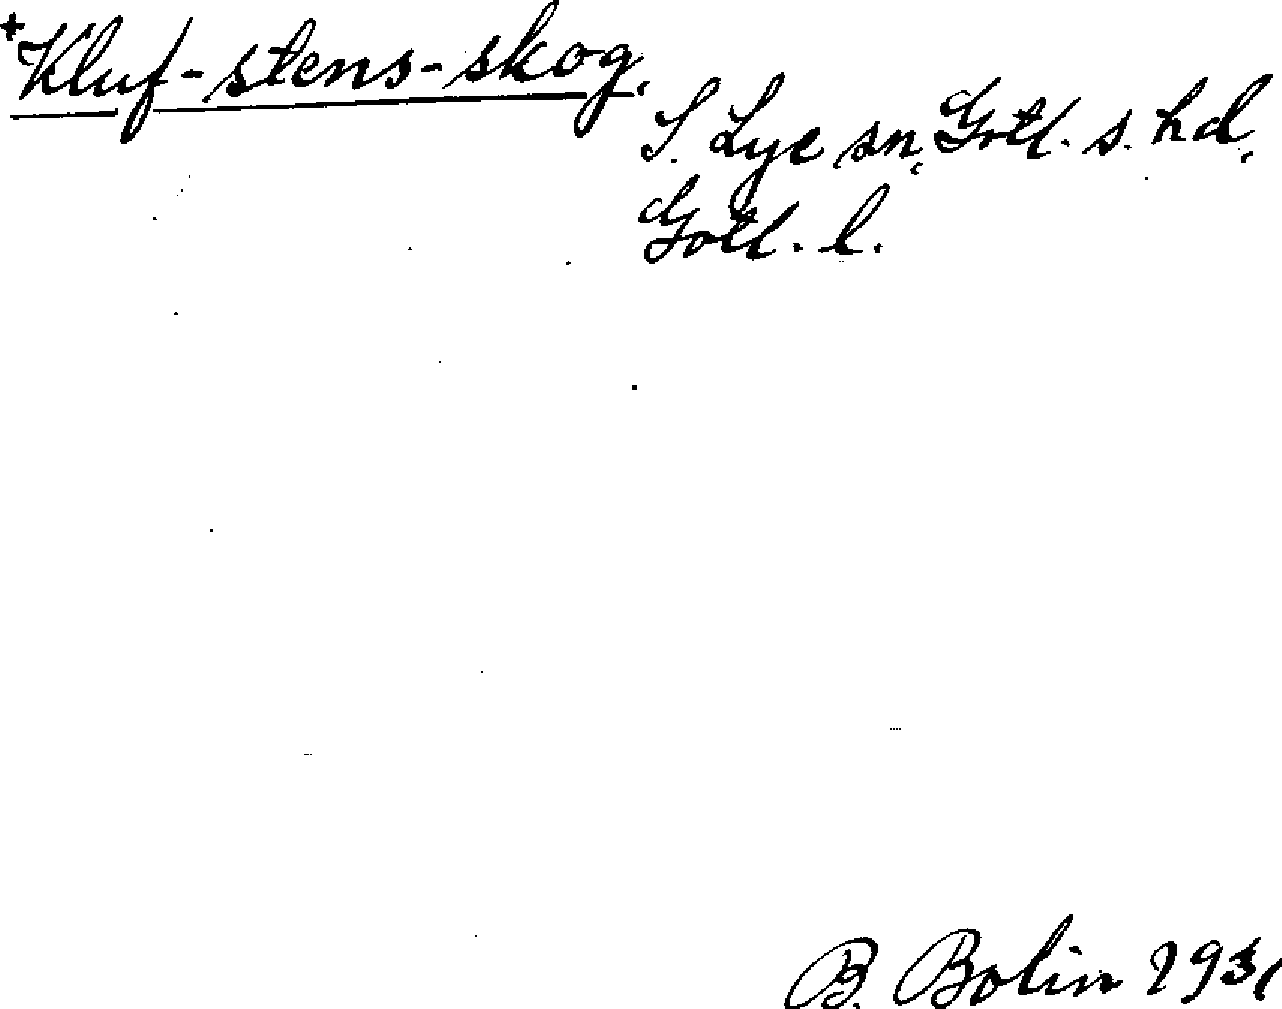 +Kluf-stens-skog.
S. Lye sn, Gotl. s. hd,
Gotl. l.
B. Bolin 1931